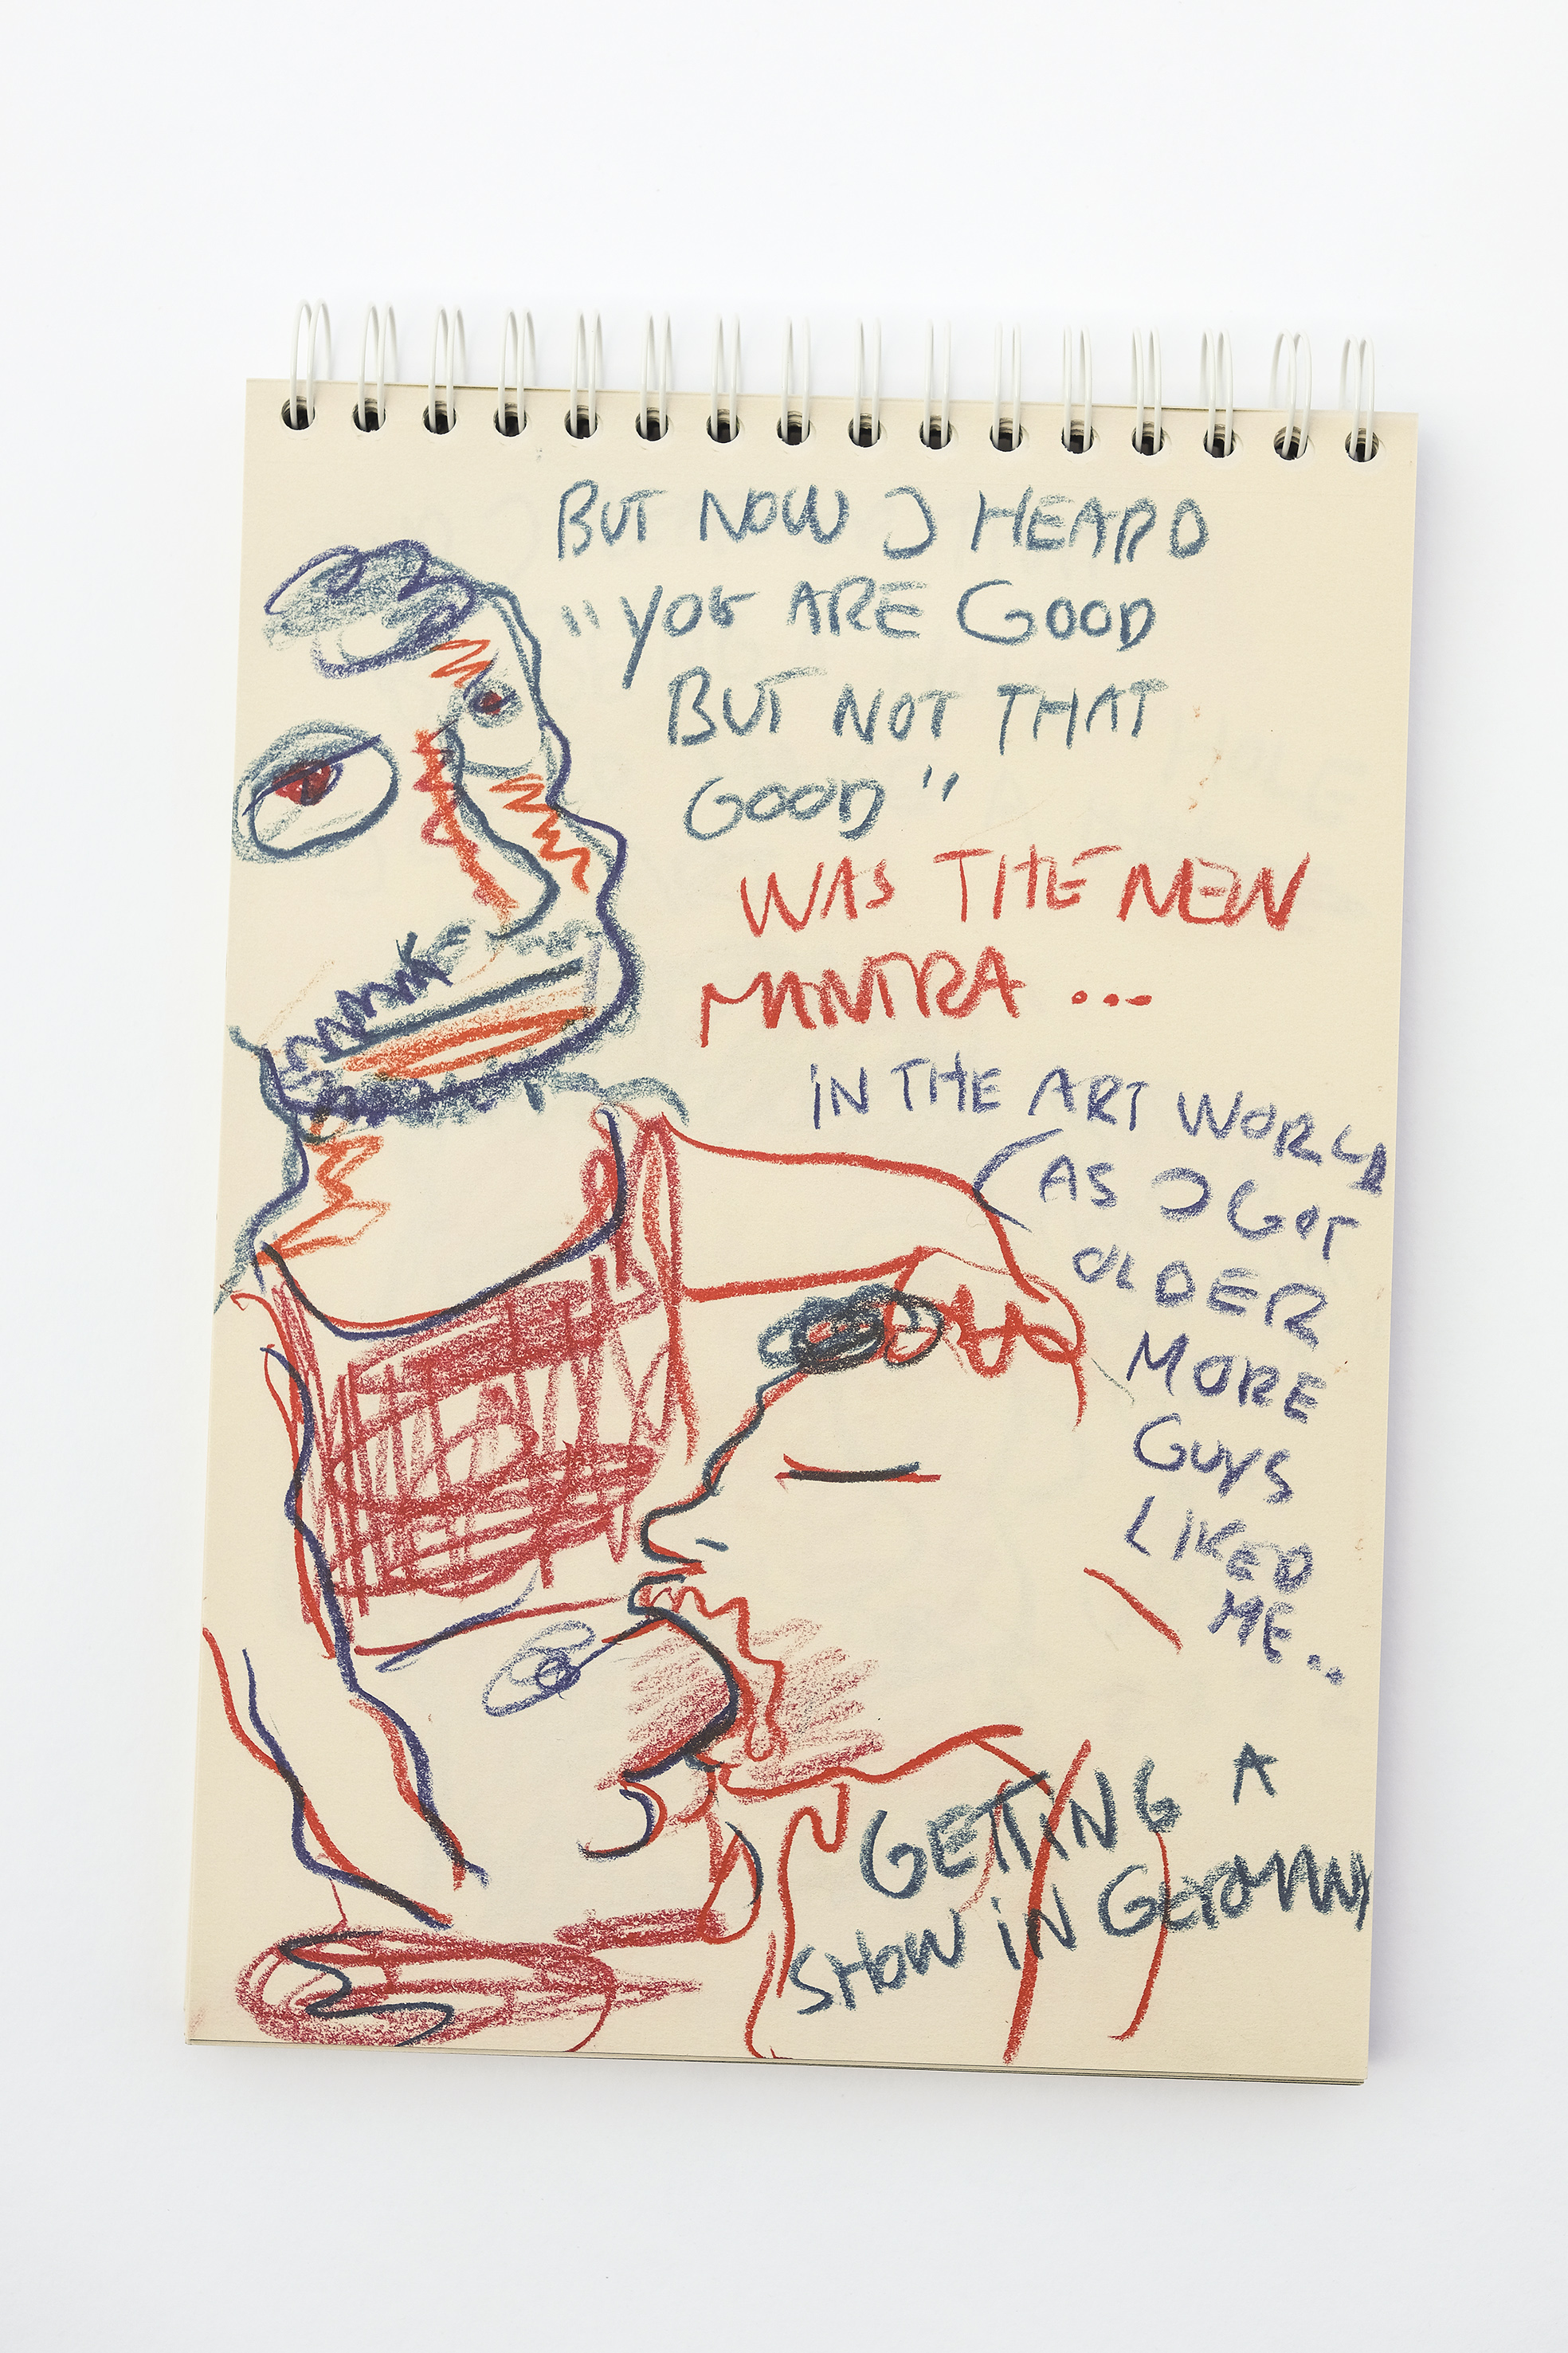 BUT NOW I HEARD
"YOU ARE GOOD
BUT NOT THAT
GOOD"
WAS THE NEW
MANTRA ...
IN THE ART WORLD
(AS I GOT
OLDER
MORE
GUYS
LIKED
ME..
GETTING A
SHOW IN GERMANY